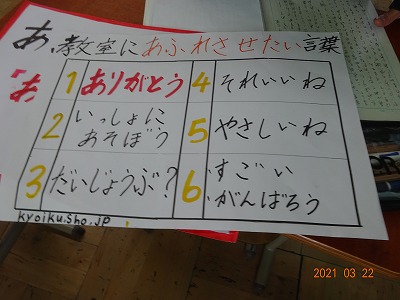 あ、教室にあふれさせたい言葉
「あ
1 ありがとう
2 いっしょに
あそぼう
3 だいじょうぶ?
4 それいいね
5 やさしいね
6 すごい
がんばろう
kyoiku.sho.jp
2021 03 22